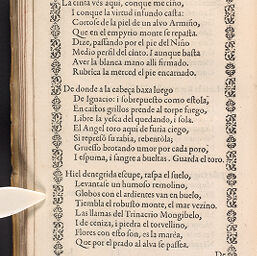 La cinta ves aqui, conque me ciño,
I conque la virtud infundo casta:
Cortose de la piel de un alvo Armiño,
Que en el empyrio monte se repasta.
Dize, passando por el pie del Niño
Medio perfil del cinto. I aunque basta
Aver la blanca mano alli firmado.
Rubrica la merced el pie encarnado.
De donde a la cabeça baxa luego
De Ignacio: i sobrepuesto como estola,
En castos grillos prende al torpe fuego,
Libre la yesca del quedando, i sola.
El Angel toro aqui de furia ciego,
Si represò su rabia, rebentòla;
Gruesso brotando umor por cada poro,
I espuma, i sangre a bueltas. Guarda el toro.
Hiel denegrida escupe, raspa el suelo,
Levantase un humoso remolino,
Globos con el ardientes van en buelo,
Tiembla el robusto monte, el mar vezino.
Las llamas del Trinacrio Mongibelo,
I de ceniza, i piedra el torvellino,
Flores con esto son, es la marea,
Que por el prado al alva se passea.
De